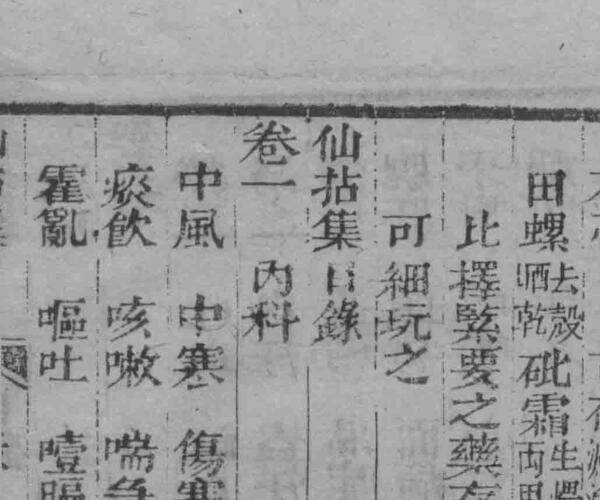 田螺去殼晒乾砒霜生
比擇緊要之藥
可細玩之
仙拈集目錄
卷一 內科
中風 中寒 傷寒
痰飲 咳嗽 喘急
霍亂 嘔吐 噎膈